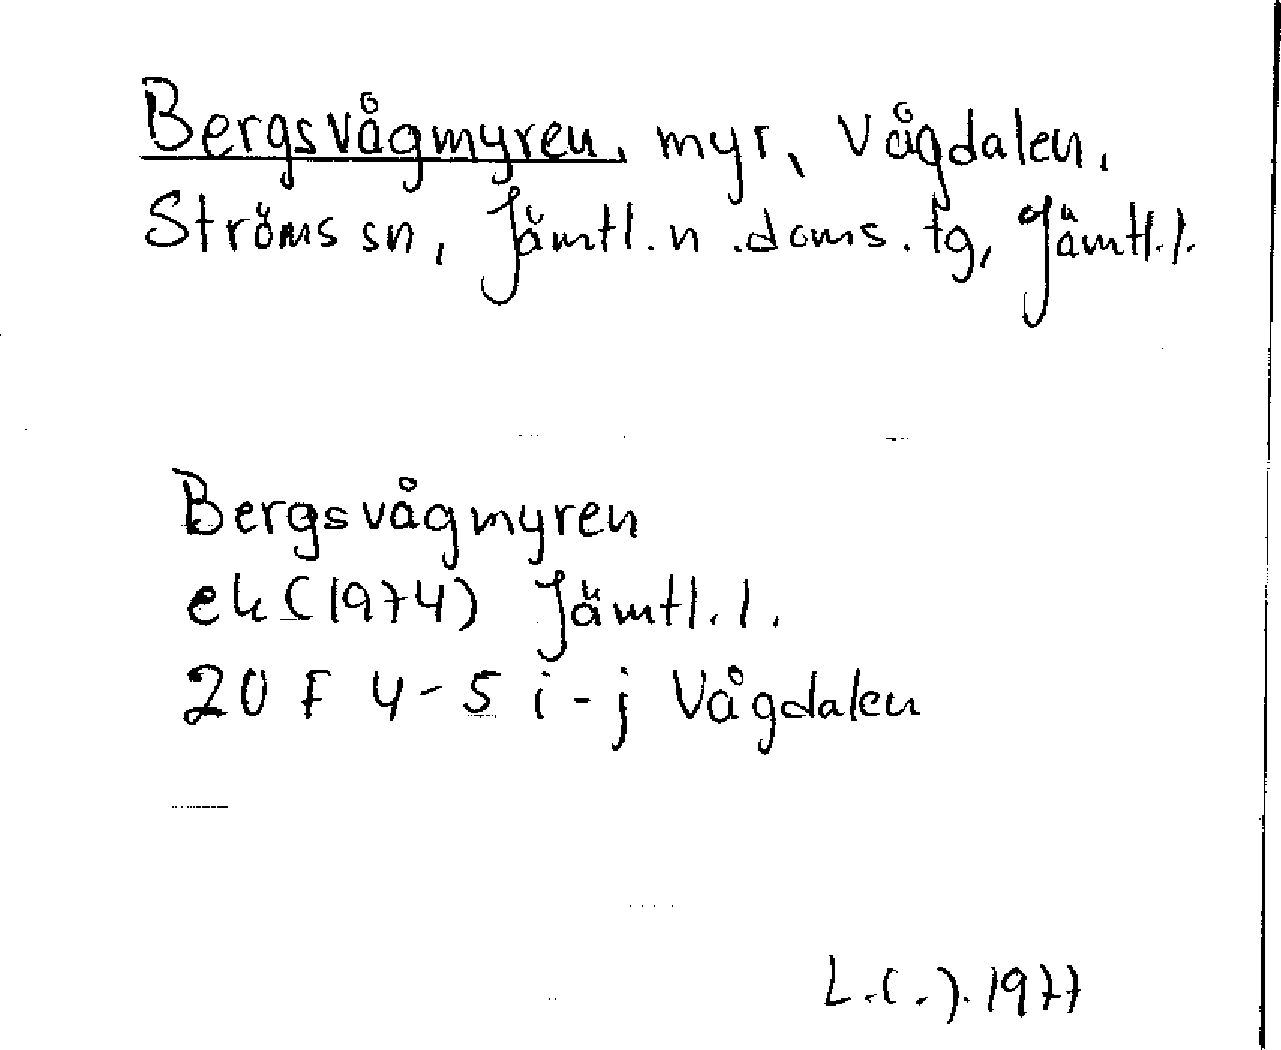 Bergsvågmyren, myr, Vågdalen,
Ströms sn, Jämtl. n. doms. tg, Jämtl. l.
Bergsvågmyren
ek (1974) Jämtl. l.
20 F 4-5 i-j Vågdalen
L.(.). 1977